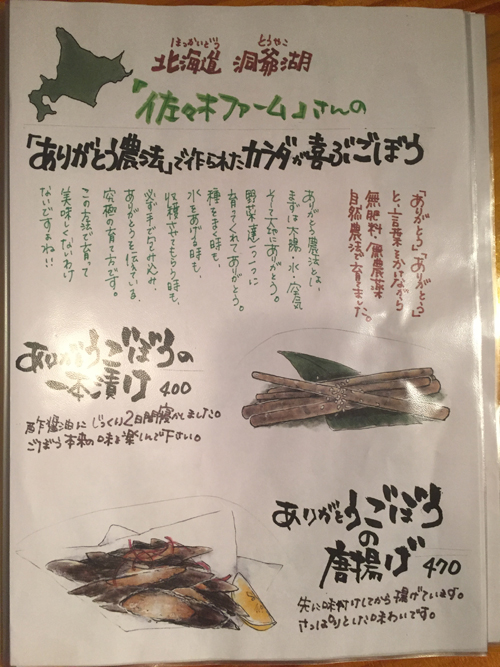 ほっかいどう とうやこ
北海道 洞爺湖
「佐々木ファーム」さんの
「ありがとう農法」で作られたカラダが喜ぶごぼう
「ありがとう」「ありがとう」
と、言葉をかけながら
無肥料/無農薬
自然農法で育てました。
ありがとう農法とは、
まずは太陽・水・空気
そして大地にありがとう。
野菜達一つ一つに
育ってくれてありがとう。
種をまく時も、
水をあげる時も、
収穫させてもらう時も、
必ず手で包み込み、
ありがとうを伝えている、
究極の育て方です。
この方法で育って
美味しくないわけ
ないですよね!!
ありがとうごぼうの
一本漬け 400
酢醤油にじっくり2日間寝かしました。
ごぼう本来の味を楽しんで下さい。
ありがとうごぼう
の
唐揚げ 470
先に味付けしてから揚げています。
さっぱりとした味わいです。